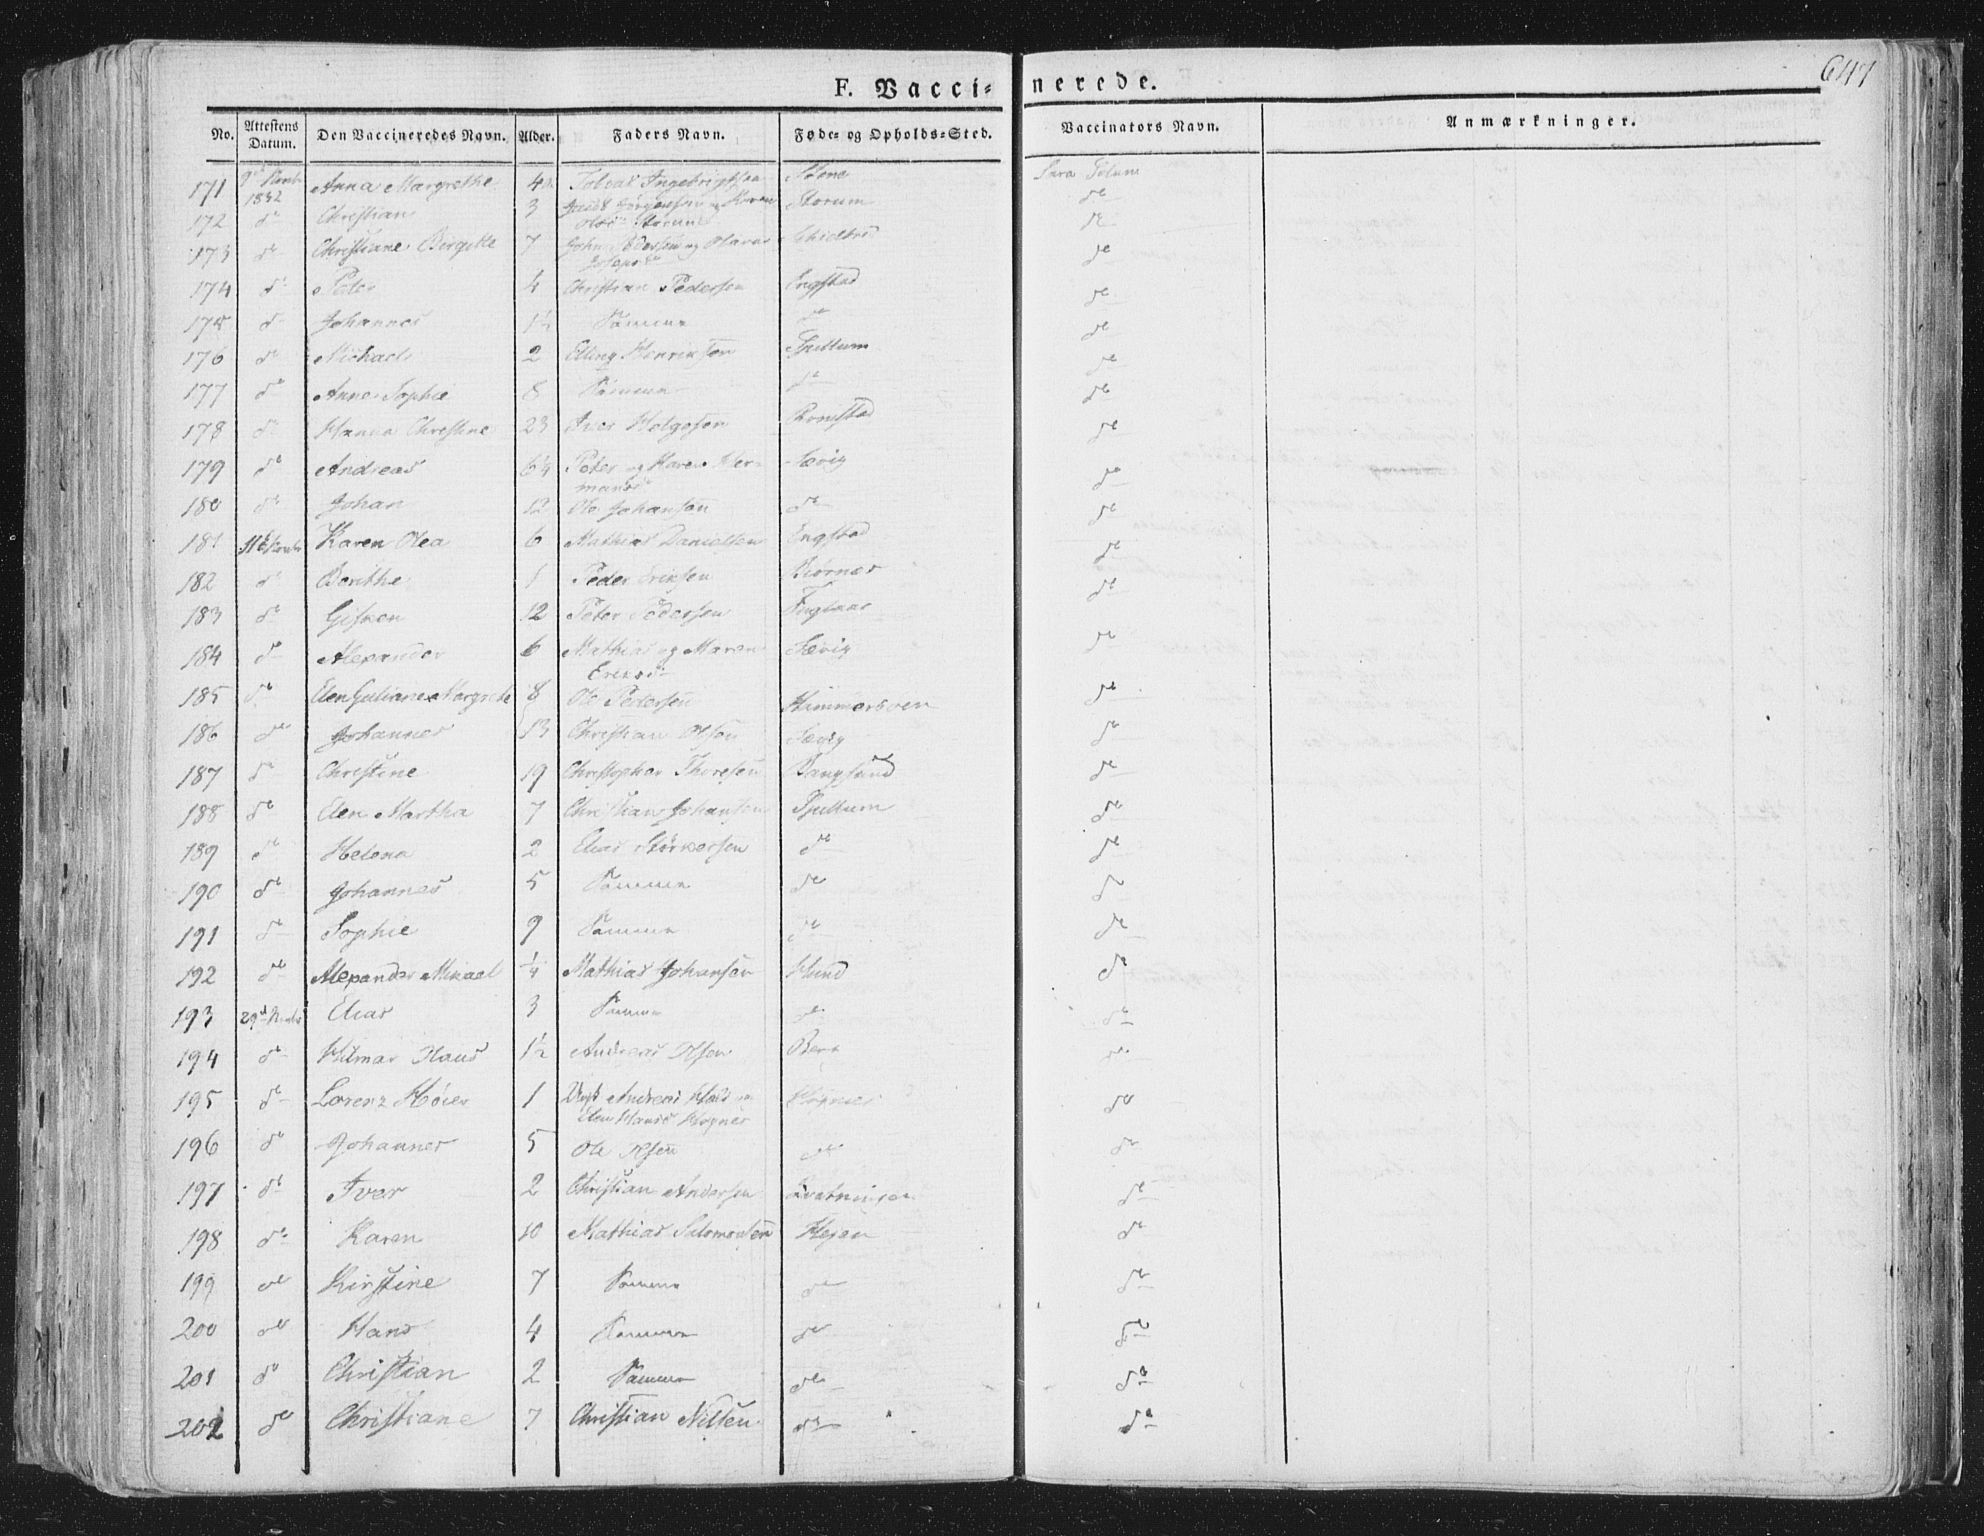 647
F. Vaccinerede.
No. Attestens Datum. Den Vaccineredes Navn. Alder. Faders Navn. Føde- og Opholds-Sted. Vaccinators Navn. Anmærkninger.
171 1832 Anna Margrethe 4 Tobias Ingebrigtsen Sara
172 d° Christian 3 Storum d°
173 d° Christiane Birgitte 7 d°
174 d° Peter 4 Christian Pedersen Engstad d°
175 d° Johannes 1½ Samme d° d°
176 d° Michael 2 Elling Henriksen Spillum d°
177 d° Anne Sophie 8 Samme d° d°
178 d° Hanna Christine 23 Iver Helgesen d°
179 d° Andreas 6¼ Peter og Maren Her-
mans Sævig d°
180 d° Johan 12 Ole Johansen d° d°
181 11te Karen Olea 6 Mathias Danielsen Engstad d°
182 d° Berithe 1 Peder Eriksen Biornæs d°
183 d° Gisken 12 Peter Pedersen d°
184 d° Alexander 6 Mathias og Maren
Eriksd. Sævig d°
185 d° Elen Juliane Margrete 8 Ole Pedersen d°
186 d° Johannes 13 Christian Olsen Sævig d°
187 d° Christine 19 Christopher Thoresen Bangsund d°
188 d° Elen Martha 7 Christian Johansen Spillum d°
189 d° Helena 2 Elias Størkersen d° d°
190 d° Johannes 5 Samme d° d°
191 d° Sophie 9 Samme d° d°
192 d° Alexander Mikael ¼ Mathias Johansen Hund d°
193 29d Elias 3 Samme d° d°
194 d° Hilmar Olaus 1½ Andreas Olsen d°
195 d° Lorenz Høier 1 Andreas
Elen d°
196 d° Johannes 5 Ole Olsen d° d°
197 d° Iver 2 Christian Andersen d°
198 d° Karen 10 Mathias Salomonsen d°
199 d° Kirstine 7 Samme d° d°
200 d° Hans 4 Samme d° d°
201 d° Christian 2 Samme d° d°
202 d° Christiane 7 Christian Nilsen d° d°